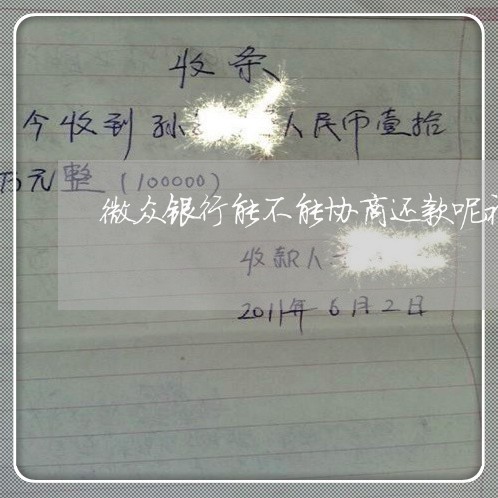 收条
今收到孙 人民币壹拾
万元整(100000)
微众银行能不能协商还款呢
收款人
2011年6月2日